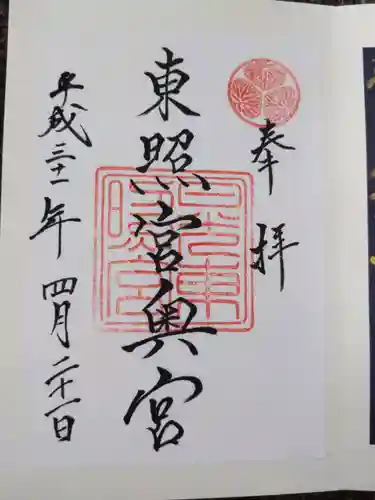 奉拝
東照宮奥宮
平成三十一年四月二十一日